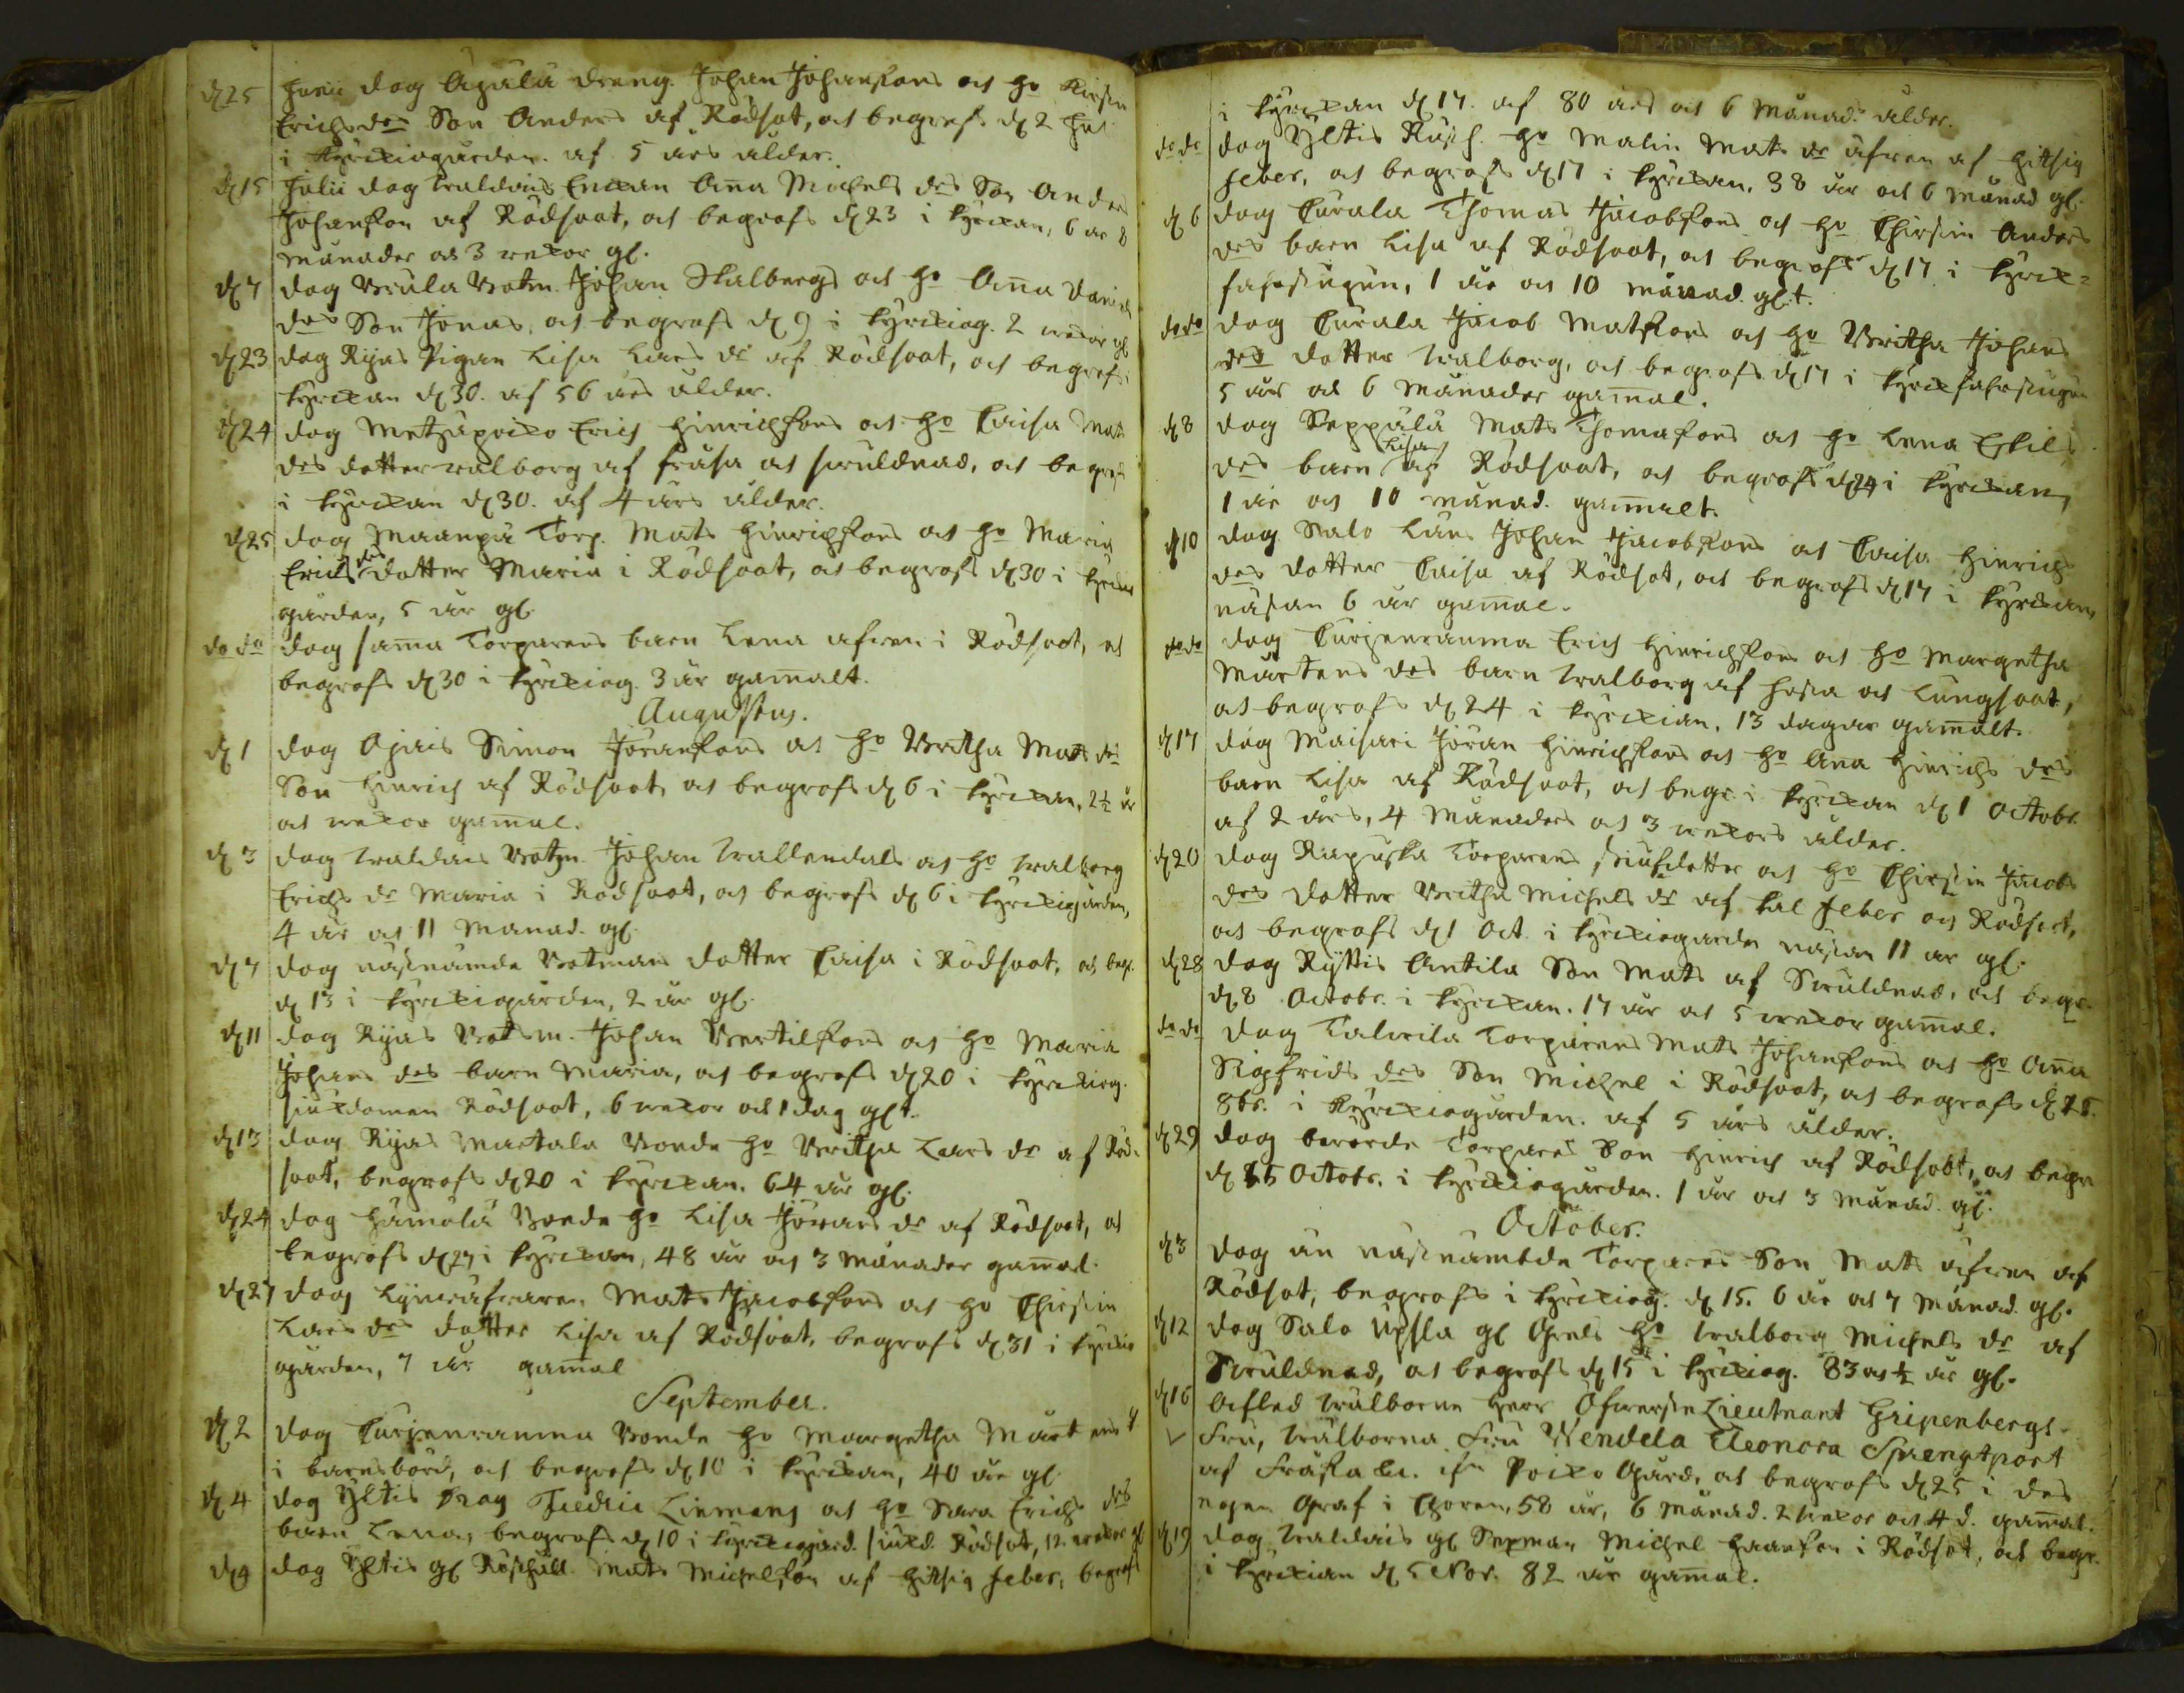 d. 25 Junii dog Apala dreng. Johan Johanssons och ho Kirstin
Erichs drs Son Anders af Rödsot, och begrofs d. 2 Jul.
i kyrckiogården. af 5 års ålder.
d. 15 Julii dog Waldais Enckan Anna Michels drs Son Anders
Johansson af Rödsoot, och begrofs d. 23 i kyrckan, 6 år 8
månader och 3 wekor gl.
d. 7 dog Urula Botzm. Johan Stalbergs och ho Anna Daniels
drs Son Jonas, och begrofs d. 9 i kyrckiog. 2 wekor gl.
d. 23 dog Rijas Pigan Lisa Lars dr af Rödsoot, och begrofs i
kyrckan d. 30. af 56 års ålder.
d. 24 dog Metzäpoiko Erich Hinrichssons och ho Caisa Mats
drs dotter Walborg af frasa och swuldnad, och begrofs
i kyrckan d. 30. af 4 års ålder.
d. 25 dog Maanpä Torp. Mats Hinrichssons och ho Maria
Erichs drs dotter Maria i Rödsoot, och begrofs d. 30 i kyrckio
gården, 5 år gl.
do do dog samma Torparens barn Lena äfwen i Rödsoot, och
begrofs d. 30 i kyrckiog. 3 år gammalt.
Augustus.
d. 1 dog Ojais Simon Jöranssons och ho Britha Mats drs
Son Hinrich af Rödsoot, och begrofs d. 6 i kyrckan, 2½ år
och wekor gammal.
d. 3 dog Waldais Botzm. Johan Wallendals och ho Walborg
Erichs dr Maria i Rödsoot, och begrofs d. 6 i kyrckiogården,
4 år och 11 månad. gl.
d. 7 dog näst nämde Botzmans dotter Caisa i Rödsoot, och begr.
d. 13 i kyrckiogården, 2 år gl.
d. 11 dog Rijas Botsm. Johan Bertilssons och ho Maria
Johans drs barn Maria, och begrofs d. 20 i kyrckiog.
siukdomen Rödsoot, 6 wekor och 1 dag glt.
d. 13 dog Rijas Martala Bonde ho Britha Lars dr af Röd-
soot, begrofs d. 20 i kyrckan. 64 år gl.
d. 24 dog Hämälä Bonde ho Lisa Jörans dr af Rödsoot, och
begrofs d. 27 i kyrckan, 48 år och 3 månader gammal.
d. 27 dog Mats Jacobssons och ho Chirstin
Lars drs dotter Lisa af Rödsoot, begrofs d. 31 i kyrckio
gården, 7 år gammal
September.
d. 2 dog Turjenranna Bonde ho Margetha Mårtens dr
i barnsbörd, och begrofs d. 10 i kyrckan, 40 år gl.
d. 4 dog Yltis Drag Fredric Linmans och ho Sara Erichs drs
barn Lena, begrofs d. 10 i kyrckiogård. siukd. Rödsot, 12 wekor gl.
d. 9 dog Yltis gl. Rusthåll. Mats Michelsson af hitsig feber, begrofs
i kyrckan d. 17. af 80 års och 6 månads ålder.
do do dog Yltis Rusth. ho Malin Mats dr äfwen af hitsig
feber, och begrofs d. 17 i kyrckan. 38 år och 6 månad gl.
d. 6 dog Turala Thomas Jacobssons och ho Chirstin Anders
drs barn Lisa af Rödsoot, och begrofs d. 17 i kyrck-
farstugun, 1 år och 10 månad. glt.
do do dog Turala Jacob Matssons och ho Britha Johans
drs dotter Walborg, och begrofs d. 17 i kyrckfarstugun
5 år och 6 månader gammal.
d. 8 dog Seppälä Mats Thomassons och ho Lena Eskils
drs barn Lisa af Rödsoot, och begrofs d. 24 i kyrckan,
1 år och 10 månad. gammalt.
d. 10 dog Salo Lars Johan Jacobssons och Caisa Hinrichs
drs dotter Caisa af Rödsot, och begrofs d. 17 i kyrckan,
nästan 6 år gammal.
do do dog Turjenranna Erich Hinrichssons och ho Margetha
Mårtens drs barn Walborg af hosta och Lungsoot,
och begrofs d. 24 i kyrckian. 13 dagar gammalt.
d. 17 dog Maisari Jöran Hinrichssons och ho Anna Hinrichs drs
barn Lisa af Rödsoot, och begr. i kyrckan d. 1 Octobr.
af 2 års, 4 månaders och 3 wekors ålder.
d. 20 dog Rapuska Torparens stiufdotter och ho Chirstin Jacobs
drs dotter Britha Michels dr af kal feber och Rödsoot,
och begrofs d. 1 Oct. i kyrckiogården nästan 11 år gl.
d. 28 dog Ryttis Antila Son Mats af Swuldnad, och begr.
d. 8 Octobr. i kyrckan. 17 år och 5 wekor gammal.
do do dog Talwila Torparens Mats Johanssons och ho Anna
Sigfrids drs Son Michel i Rödsoot, och begrofs d. 15.
8br. i kyrckiogården. af 5 års ålder.
d. 29 dog berörde Torpares Son Hinrich af Rödsoot, och begr
d. 15 Octobr. i kyrckiogården. 1 år och 3 månad. gl.
October.
d. 3 dog än näst nämbde Torpares Son Mats äfwen af
Rödsot, begrofs i kyrckiog. d. 15. 6 år och 7 månad. gl.
d. 12 dog Salo Upsla gl. Grels ho Walborg Michels dr af
Swuldnad, och begrofs d. 15 i kyrckiog. 83 och ½ år gl.
d. 16 Afled Wälborne Herr Öfwerste Lieutnant Gripenbergs
Fru, Wälborna Fru Wendela Eleonora Sprengtport
af Poiko Gård, och begrofs d. 25 i des
egen Graf i Choren, 58 år, 6 månad. 2 wekor och 4 d. gammal.
d. 19 dog Waldais gl. Sexman Michel Hansson i Rödsot, och begr.
i kyrckian d. 5 Nov. 82 år gammal.